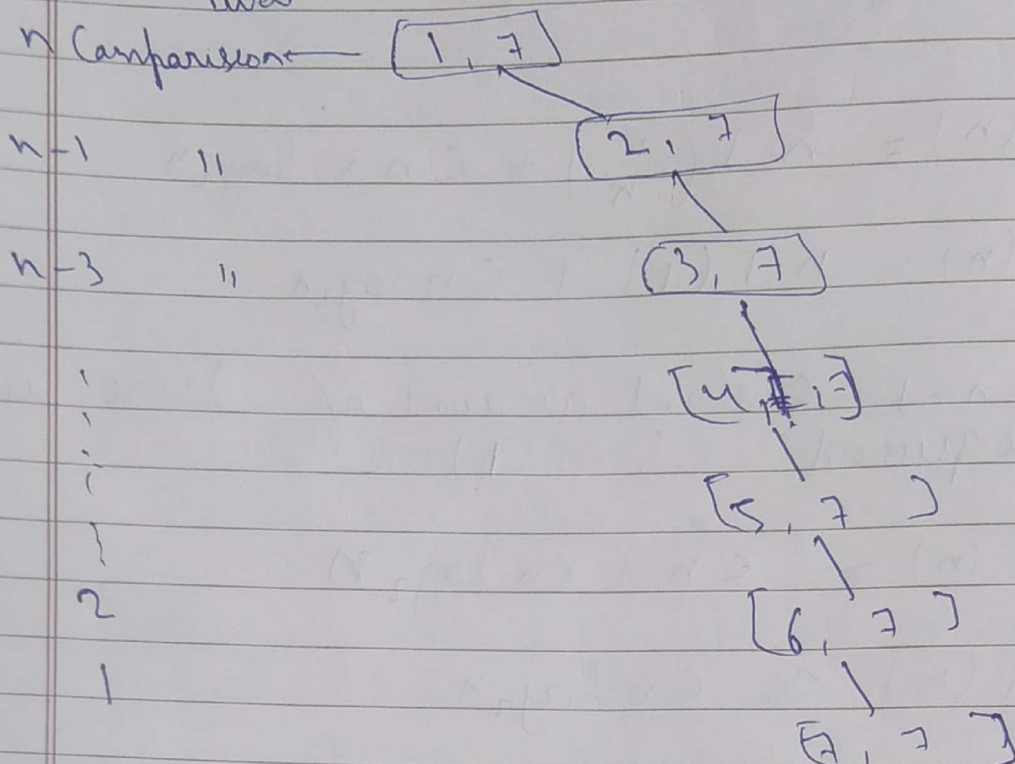 n Comparison [1, 7]
n-1 " [2, 7]
n-3 " [3, 7]
[4, 7]
[5, 7]
2 [6, 7]
1 [7, 7]